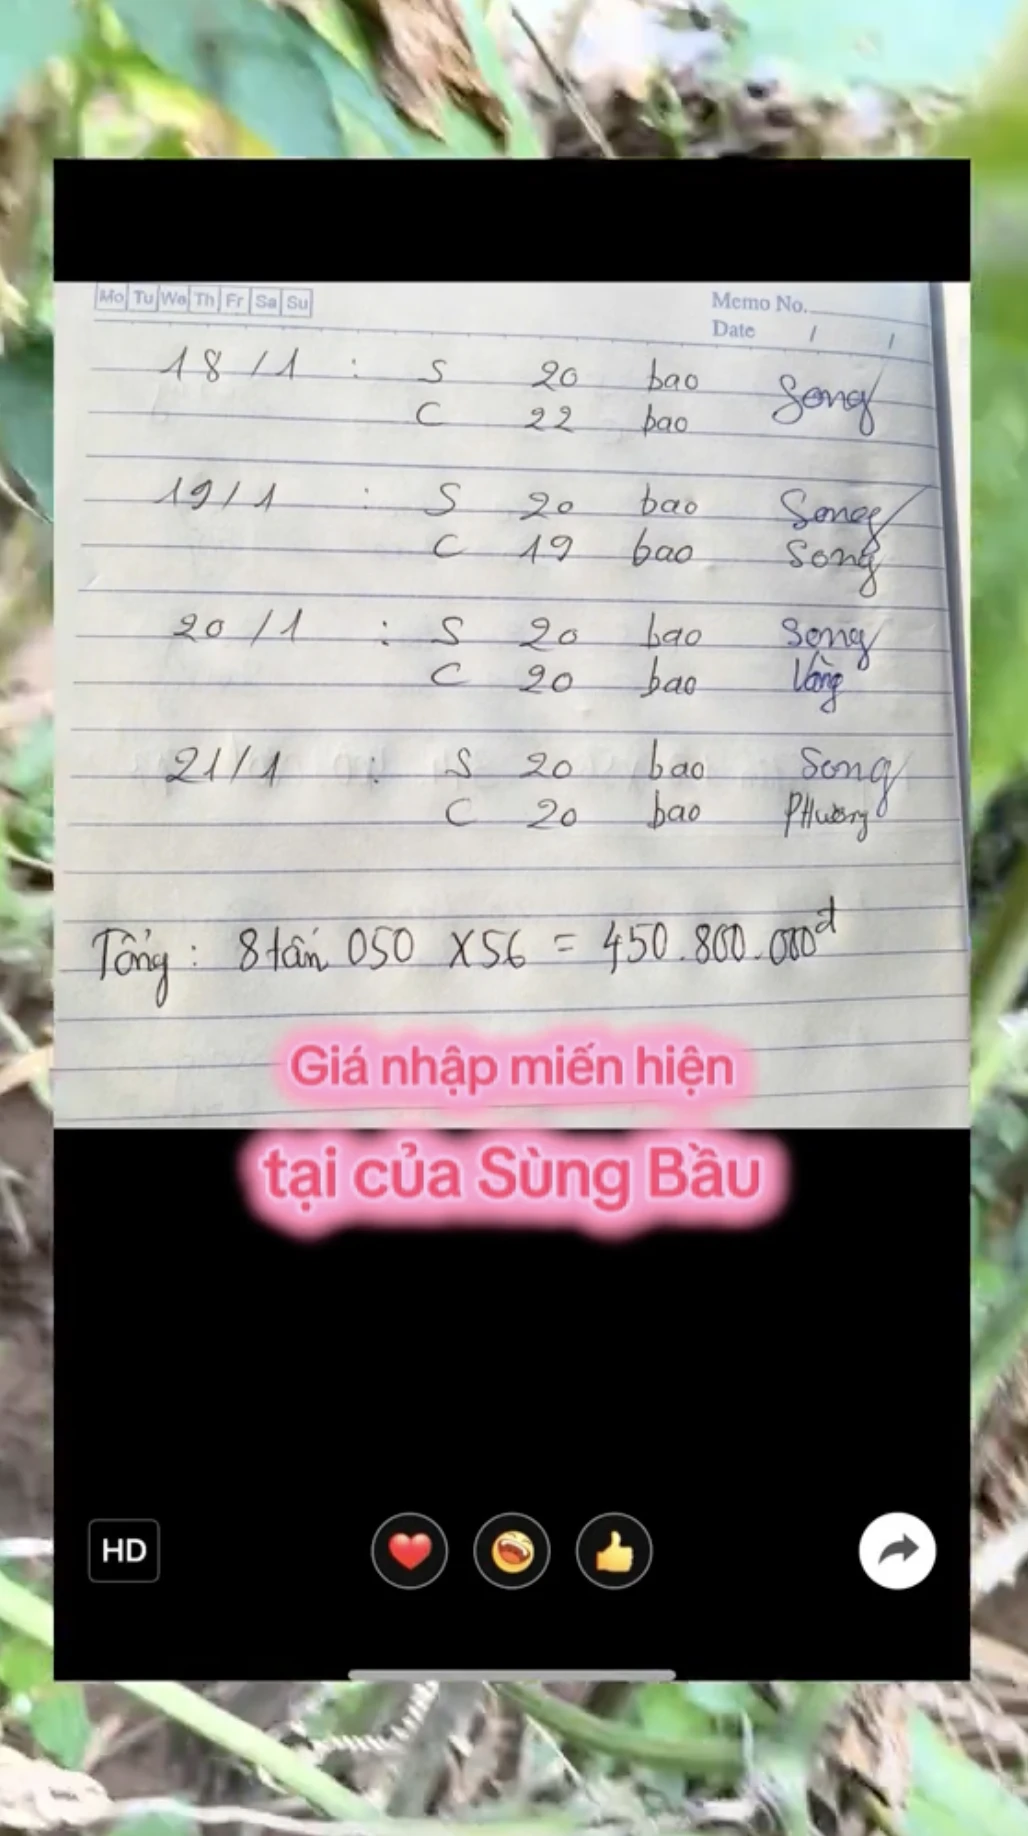 Mo Tu We Th Fr Sa Su
Memo No.
Date / /
18/1 : S 20 bao Song
C 22 bao
19/1 : S 20 bao Song
C 19 bao Song
20/1 : S 20 bao Song
C 20 bao Vàng
21/1 : S 20 bao Song
C 20 bao PHương
Tổng : 8 tấn 050 X56 = 450.800.000đ
Giá nhập miến hiện
tại của Sùng Bầu
HD